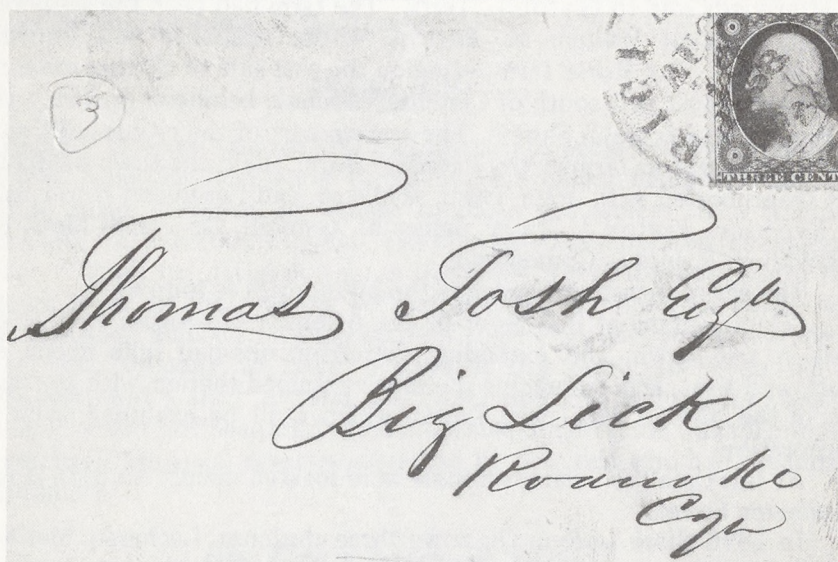 3
AUG
THREE CENT
Thomas Tosh Esqr
Big Lick
Roanoke